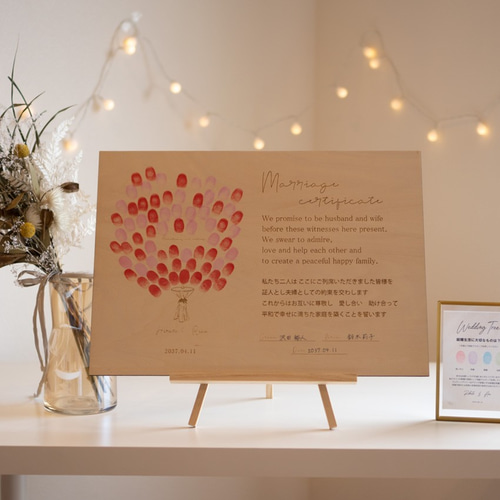 Marriage
certificate
We promise to be husband and wife
before these witnesses here present.
We swear to admire,
love and help each other and
to create a peaceful happy family.
私たち二人は ここにご列席いただきました皆様を
証人とし夫婦としての約束を交わします
これからはお互いに尊敬し 愛し合い 助け合って
平和で幸せに満ちた家庭を築くことを誓います
2037.04.11
2037.04.11
Wedding Tree